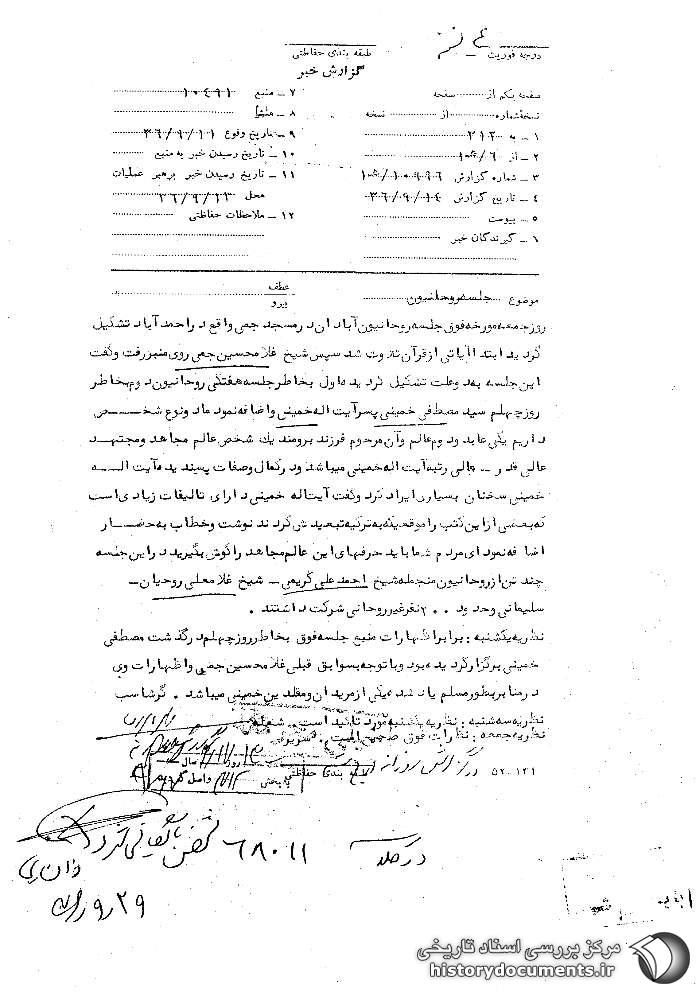 درجه فوریت
طبقه بندی حفاظتی
گزارش خبر
صفحه یکم از صفحه
نسخه شماره از نسخه
۱ – به ۳۱۲
۲ – از ۶/ه۱۰
۳ – شماره گزارش ۱۰۹۹۶/ه۱۰
۴ – تاریخ گزارش ۳۶/۹/۱۴
۵ – پیوست
۶ – گیرندگان خبر
۷ – منبع ۱۰۴۹۱
۸ – منشأ
۹ – تاریخ وقوع ۳۶/۹/۱۱
۱۰ – تاریخ رسیدن خبر به منبع
۱۱ – تاریخ رسیدن خبر برهبر عملیات
محل ۳۶/۹/۱۳
۱۲ – ملاحظات حفاظتی
موضوع جلسه روحانیون
عطف
پیرو
روز جمعه مورخه فوق جلسه روحانیون آبادان در مسجد جمی واقع در احمد آباد تشکیل
گردید ابتدا آیاتی از قرآن تلاوت شد سپس شیخ غلامحسین جمی روی منبر رفت و گفت
این جلسه بدو علت تشکیل گردیده اول بخاطر جلسه هفتگی روحانیون دوم بخاطر
روز چهلم سید مصطفی خمینی پسر آیت اله خمینی و اضافه نمود ما دو نوع شخص
داریم یکی عابد و دوم عالم و آن مرحوم فرزند برومند یک شخص عالم مجاهد و مجتهد
عالی قدر – عالی رتبه آیت اله خمینی میباشد و در کمال وصفات پسندیده آیت اله
خمینی سخنان بسیاری ایراد کرد و گفت آیت اله خمینی دارای تالیفات زیادی است
که بعضی از این کتب را موقعیکه به ترکیه تبعیدش کردند نوشت و خطاب به حضار
اضافه نمود ای مردم شما باید حرفهای این عالم مجاهد را گوش بگیرید در این جلسه
چند تن از روحانیون منجمله شیخ احمد علی کریمی – شیخ غلامعلی روحیان –
سلیمانی و حدود ۲۰۰ نفر غیر روحانی شرکت داشتند .
نظریه یکشنبه : برابر اظهارات منبع جلسه فوق بخاطر روز چهلم درگذشت مصطفی
خمینی برگزار گردیده بود و با توجه بسوابق قبلی غلامحسین جمی و اظهارات وی
در منابر بطور مسلم یاد شده یکی از مریدان و مقلدین خمینی میباشد . گرشاسب
نظریه سه شنبه : نظریه یکشنبه مورد تائید است .
نظریه جمعه : نظرات فوق صحیح است .
روز سال
به بخش واصل گردید
طبقه بندی حفاظتی
۵۲-۱۲۱
در کلاسه ۶۸۰۱۱
مرکز بررسی اسناد تاریخی
historydocuments.ir